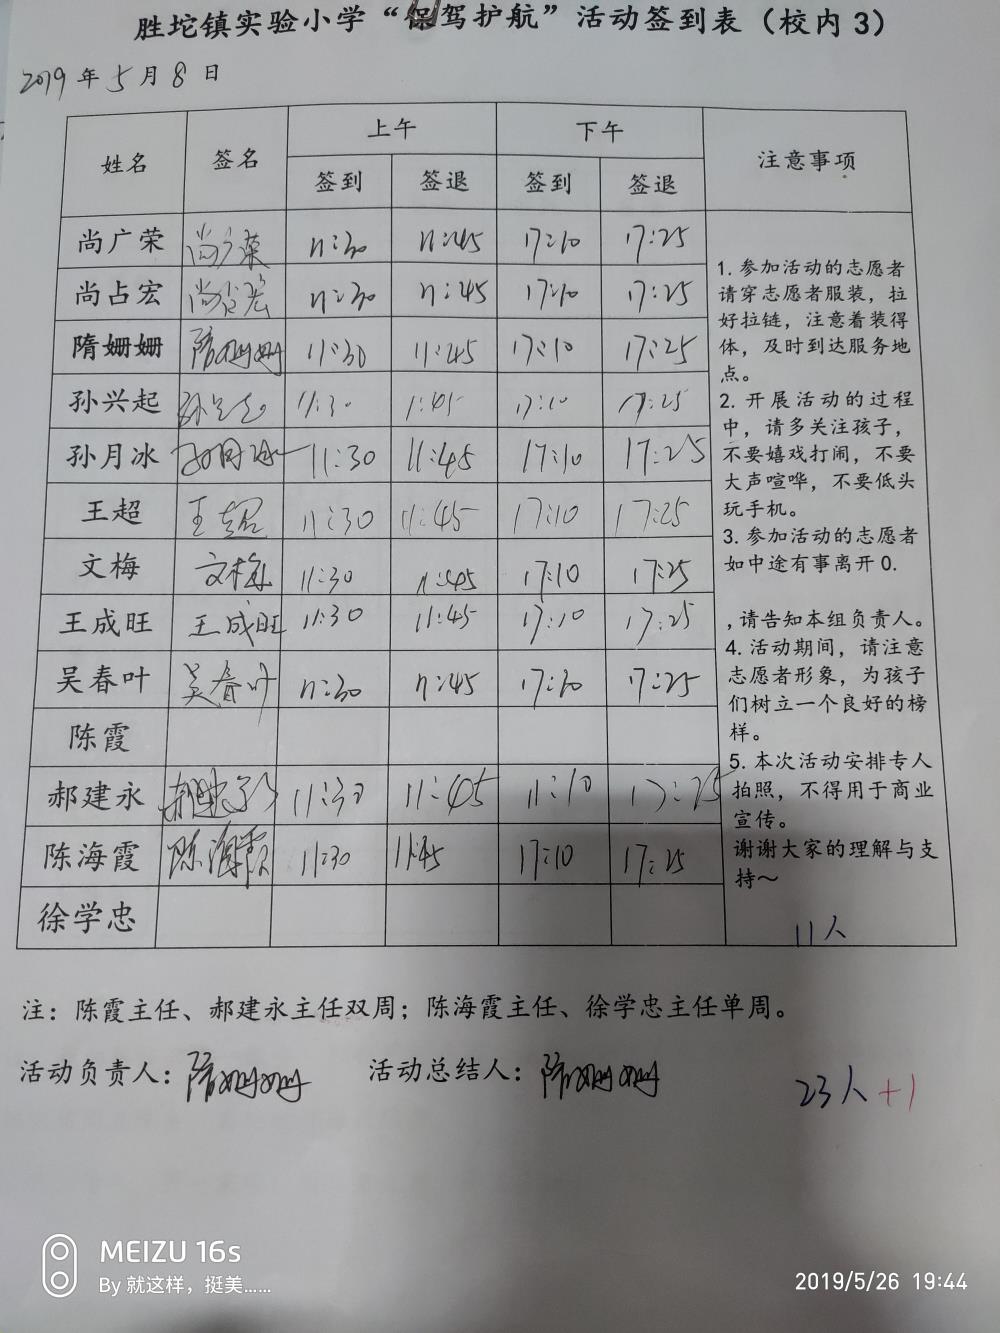 胜坨镇实验小学“保驾护航”活动签到表（校内3）
2019年5月8日
姓名 签名 上午 下午 注意事项
签到 签退 签到 签退
尚广荣 尚广荣 11:30 11:45 17:10 17:25
尚占宏 尚占宏 11:30 11:45 17:10 17:25
隋姗姗 隋姗姗 11:30 11:45 17:10 17:25
孙兴起 孙兴起 11:30 1:45 17:10 17:25
孙月冰 孙月冰 11:30 11:45 17:10 17:25
王超 王超 11:30 11:45 17:10 17:25
文梅 文梅 11:30 11:45 17:10 17:25
王成旺 王成旺 11:30 11:45 17:10 17:25
吴春叶 吴春叶 11:30 11:45 17:10 17:25
陈霞
郝建永 郝建永 11:30 11:45 11:10 17:25
陈海霞 陈海霞 11:30 11:45 17:10 17:25
徐学忠
1.参加活动的志愿者
请穿志愿者服装，拉
好拉链，注意着装得
体，及时到达服务地
点。
2.开展活动的过程
中，请多关注孩子，
不要嬉戏打闹，不要
大声喧哗，不要低头
玩手机。
3.参加活动的志愿者
如中途有事离开0.
,请告知本组负责人。
4.活动期间，请注意
志愿者形象，为孩子
们树立一个良好的榜
样。
5.本次活动安排专人
拍照，不得用于商业
宣传。
谢谢大家的理解与支
持～
11人
注：陈霞主任、郝建永主任双周；陈海霞主任、徐学忠主任单周。
活动负责人：隋姗姗 活动总结人：隋姗姗
23人+1
MEIZU 16s
By 就这样，挺美......
2019/5/26 19:44